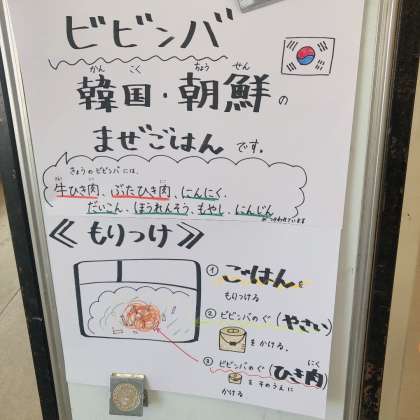 ビビンバ
かん こく ちょう せん
韓国・朝鮮の
まぜごはんです。
きょうのビビンバには、
牛ひき肉、ぶたひき肉、にんにく、
だいこん、ほうれんそう、もやし、にんじん
がつかわれています
≪もりつけ≫
① ごはんを
もりつける
② ビビンバのぐ(やさい)
をかける。
③ ビビンバのぐ(ひき肉)
にく
をそのうえに
かける